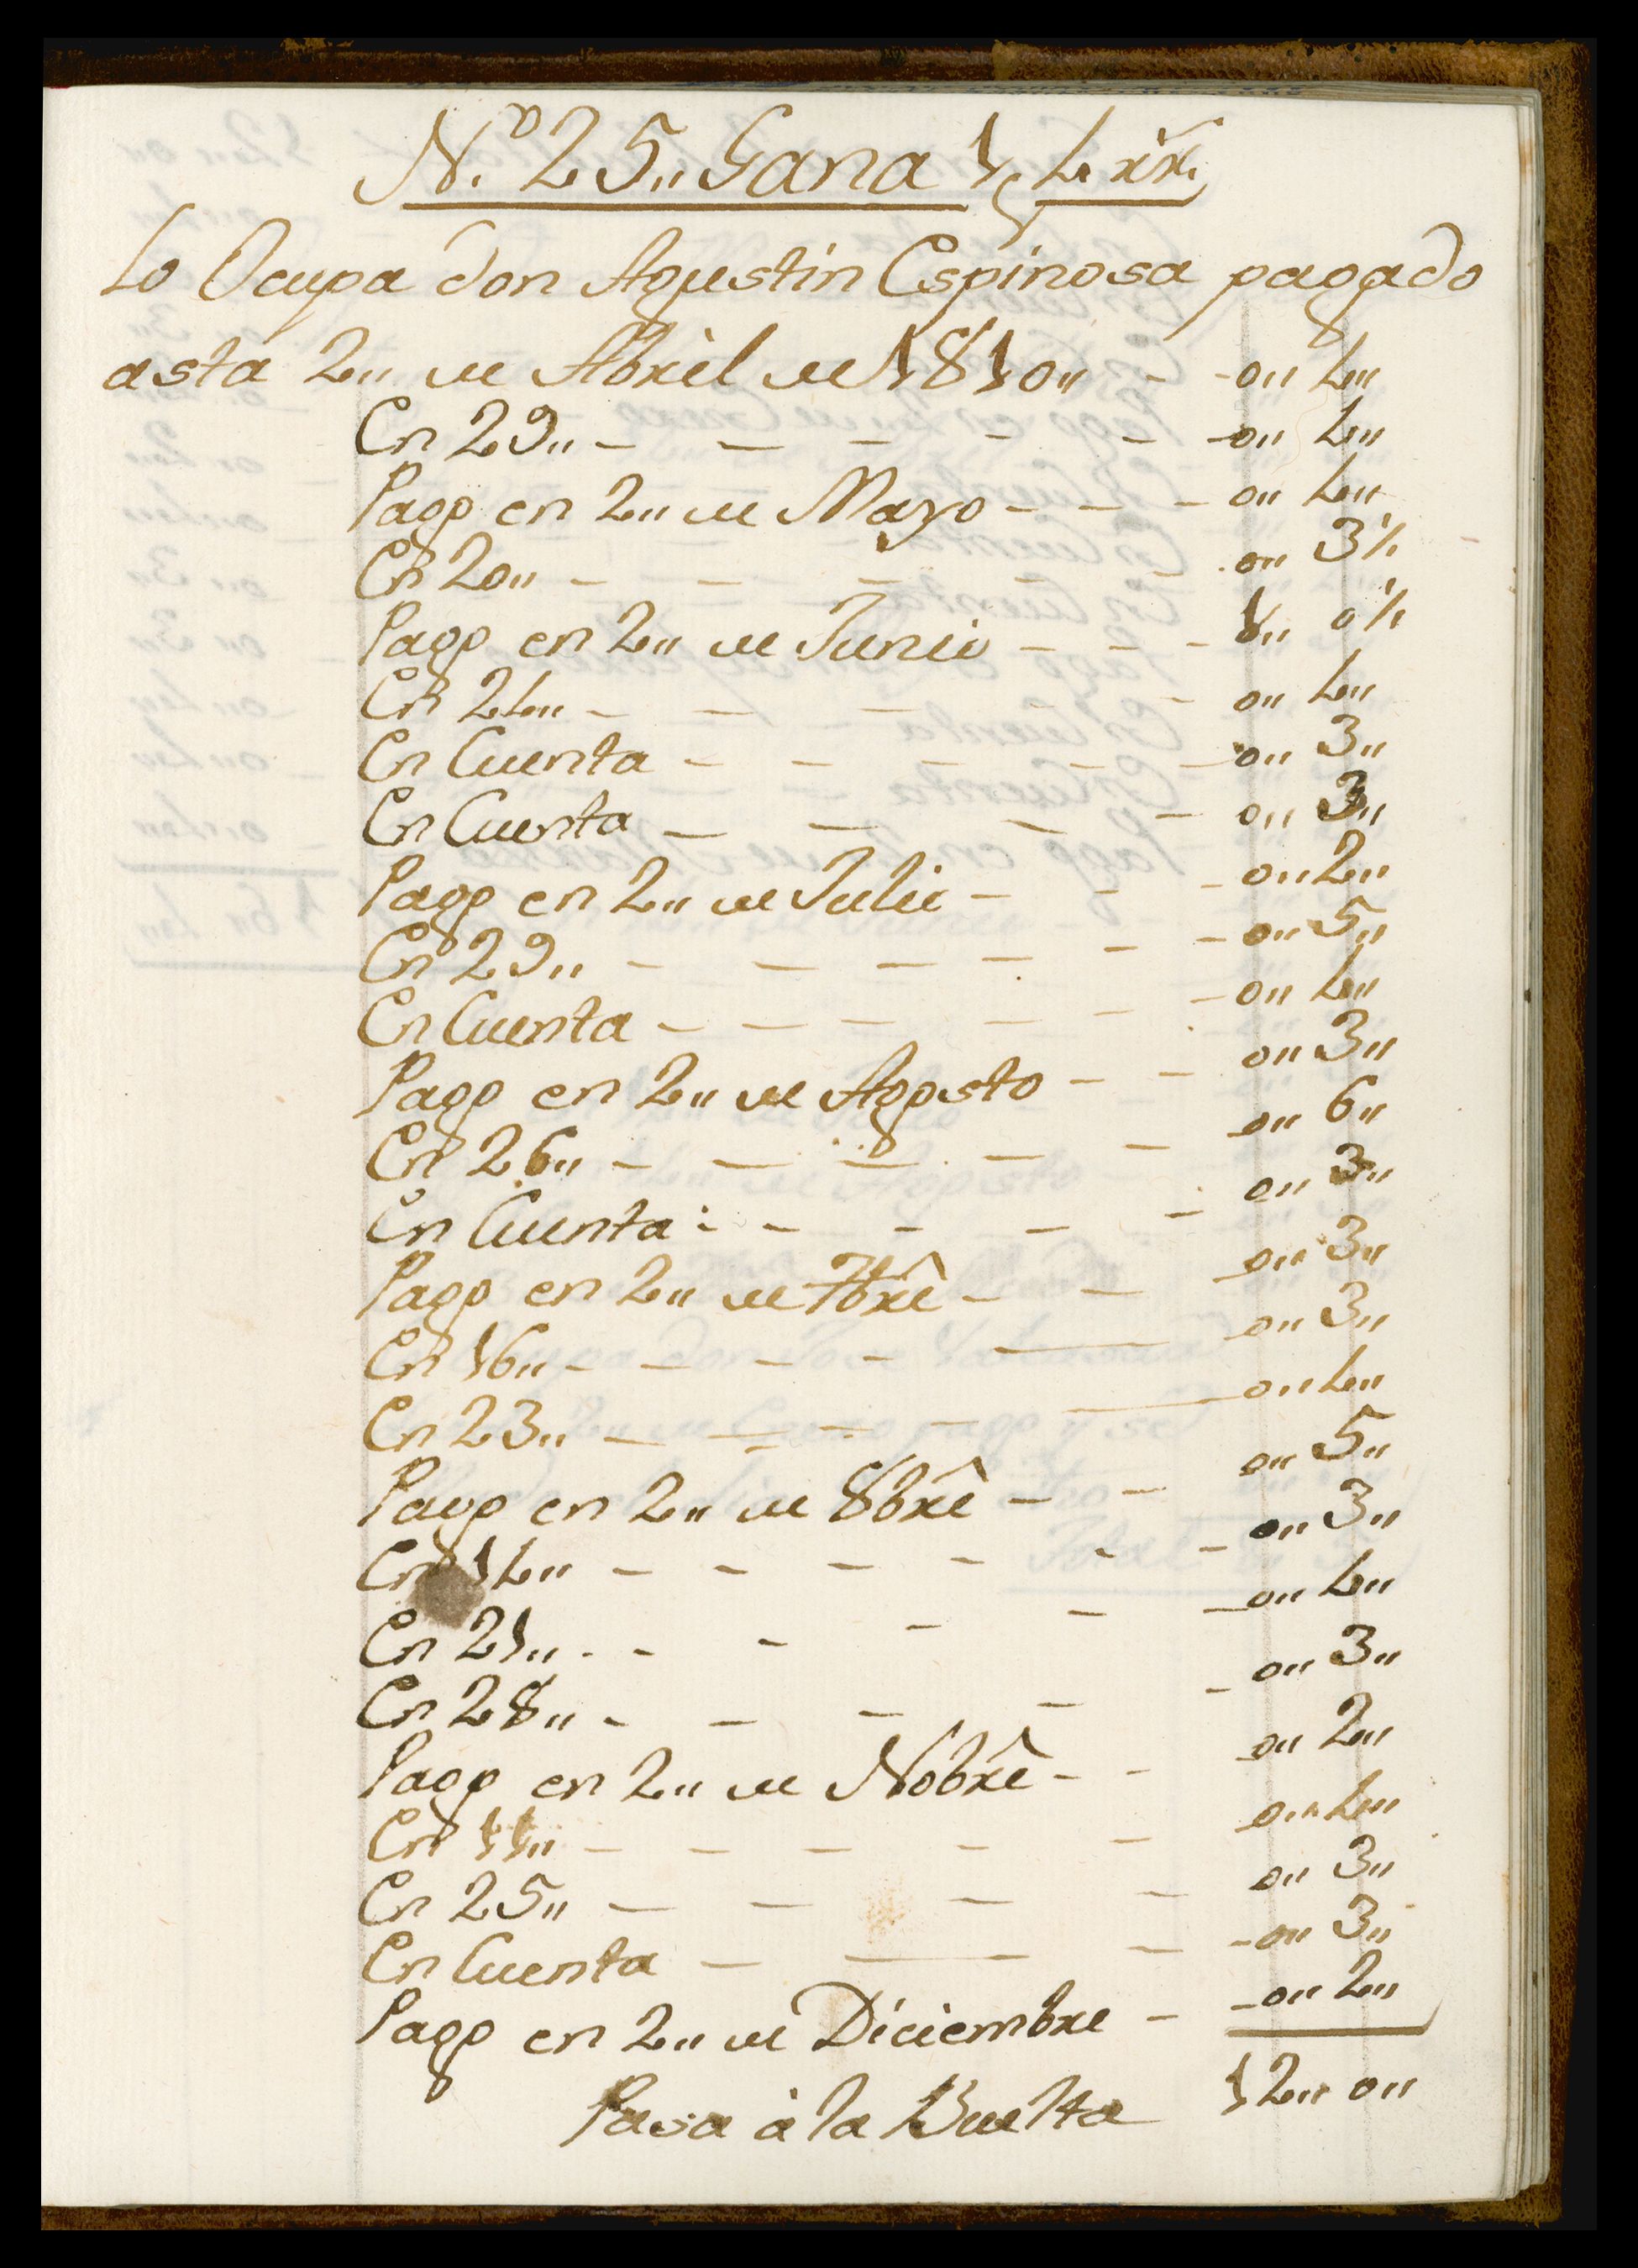 N.º 25,, Gana 1, 4 rr.
Lo Ocupa don Agustin Espinosa pagado
asta 2,, de Abril de 1810,, - - 0,, 4,,
En 29,, - - - - - - 0,, 4,,
Pago en 2,, de Mayo - - - 0,, 4,,
En 20,, - - - - - 0,, 3½
Pago en 2,, de Junio - - - 1,, 0½
En 24,, - - - - - 0,, 4,,
En Cuenta - - - - - 0,, 3,,
En Cuenta - - - - 0,, 3,,
Pago en 2,, de Julio - - - 0,, 2,,
En 29,, - - - - - - 0,, 5,,
En Cuenta - - - - - - 0,, 4,,
Pago en 2,, de Agosto - - 0,, 3,,
En 26,, - - - - - 0,, 6,,
En Cuenta - - - - - 0,, 3,,
Pago en 2,, de 7brê - - 0,, 3,,
En 16,, - - - - - 0,, 3,,
En 23,, - - - - - 0,, 4,,
Pago en 2,, de 8brê - - 0,, 5,,
En 14,, - - - - - - 0,, 3,,
En 21,, - - - - - 0,, 4,,
En 28,, - - - - - 0,, 3,,
Pago en 2,, de Nobrê - - 0,, 2,,
En 11,, - - - - - 0,, 4,,
En 25,, - - - - 0,, 3,,
En Cuenta - - - - 0,, 3,,
Pago en 2,, de Diciembre - - 0,, 2,,
Pasa à la Buelta 12,, 0,,